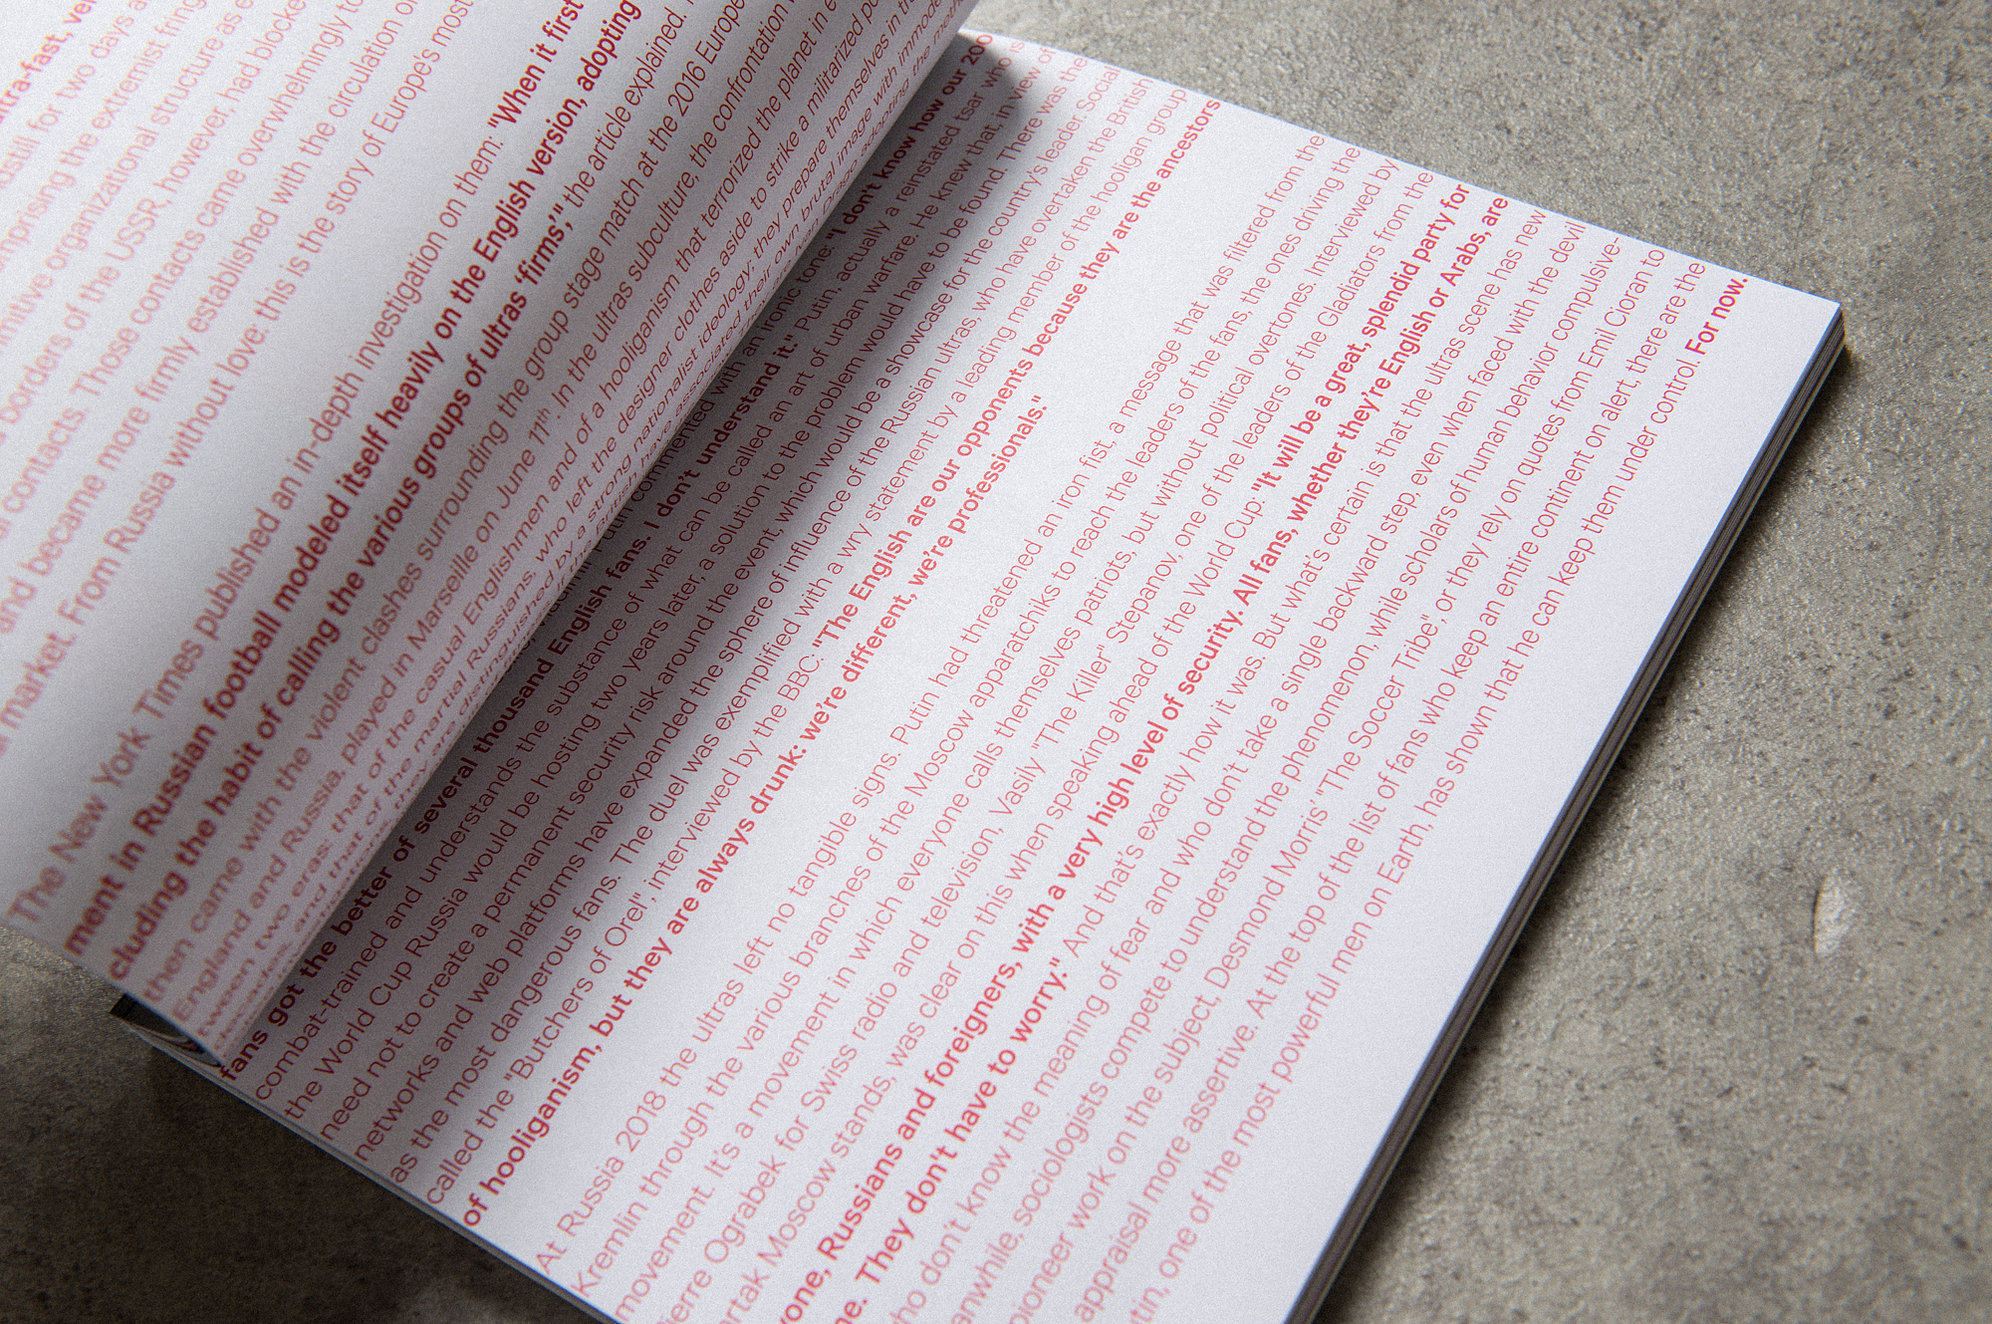 ultra-fast, ver
still for two days a
mprising the extremist fring
mitive organizational structure as e
borders of the USSR, however, had blocke
al contacts. Those contacts came overwhelmingly to
and became more firmly established with the circulation o
market. From Russia without love: this is the story of Europe's most
The New York Times published an in-depth investigation on them: "When it first
ment in Russian football modeled itself heavily on the English version, adopting
cluding the habit of calling the various groups of ultras 'firms'," the article explained.
then came with the violent clashes surrounding the group stage match at the 2016 Europe
England and Russia, played in Marseille on June 11th. In the ultras subculture, the confrontation
tween two eras: that of the casual Englishmen and of a hooliganism that terrorized the planet in
and that of the martial Russians, who left the designer clothes aside to strike a militarized
they are distinguished by a strong nationalist ideology; they prepare themselves in the
have associated their own brutal image with immode
adopting the
Putin commented with an ironic tone: "I don't know how our 200
fans got the better of several thousand English fans. I don't understand it." Putin, actually a reinstated tsar who is
combat-trained and understands the substance of what can be called an art of urban warfare. He knew that, in view of
the World Cup Russia would be hosting two years later, a solution to the problem would have to be found. There was the
need not to create a permanent security risk around the event, which would be a showcase for the country's leader. Social
networks and web platforms have expanded the sphere of influence of the Russian ultras, who have overtaken the British
as the most dangerous fans. The duel was exemplified with a wry statement by a leading member of the hooligan group
called the "Butchers of Orel", interviewed by the BBC: "The English are our opponents because they are the ancestors
of hooliganism, but they are always drunk: we're different, we're professionals."
At Russia 2018 the ultras left no tangible signs. Putin had threatened an iron fist, a message that was filtered from the
Kremlin through the various branches of the Moscow apparatchiks to reach the leaders of the fans, the ones driving the
movement. It's a movement in which everyone calls themselves patriots, but without political overtones. Interviewed by
ierre Ograbek for Swiss radio and television, Vasily "The Killer" Stepanov, one of the leaders of the Gladiators from the
artak Moscow stands, was clear on this when speaking ahead of the World Cup: "It will be a great, splendid party for
yone, Russians and foreigners, with a very high level of security. All fans, whether they're English or Arabs, are
e. They don't have to worry." And that's exactly how it was. But what's certain is that the ultras scene has new
ho don't know the meaning of fear and who don't take a single backward step, even when faced with the devil
anwhile, sociologists compete to understand the phenomenon, while scholars of human behavior compulsive-
pioneer work on the subject, Desmond Morris' "The Soccer Tribe", or they rely on quotes from Emil Cioran to
appraisal more assertive. At the top of the list of fans who keep an entire continent on alert, there are the
tin, one of the most powerful men on Earth, has shown that he can keep them under control. For now.